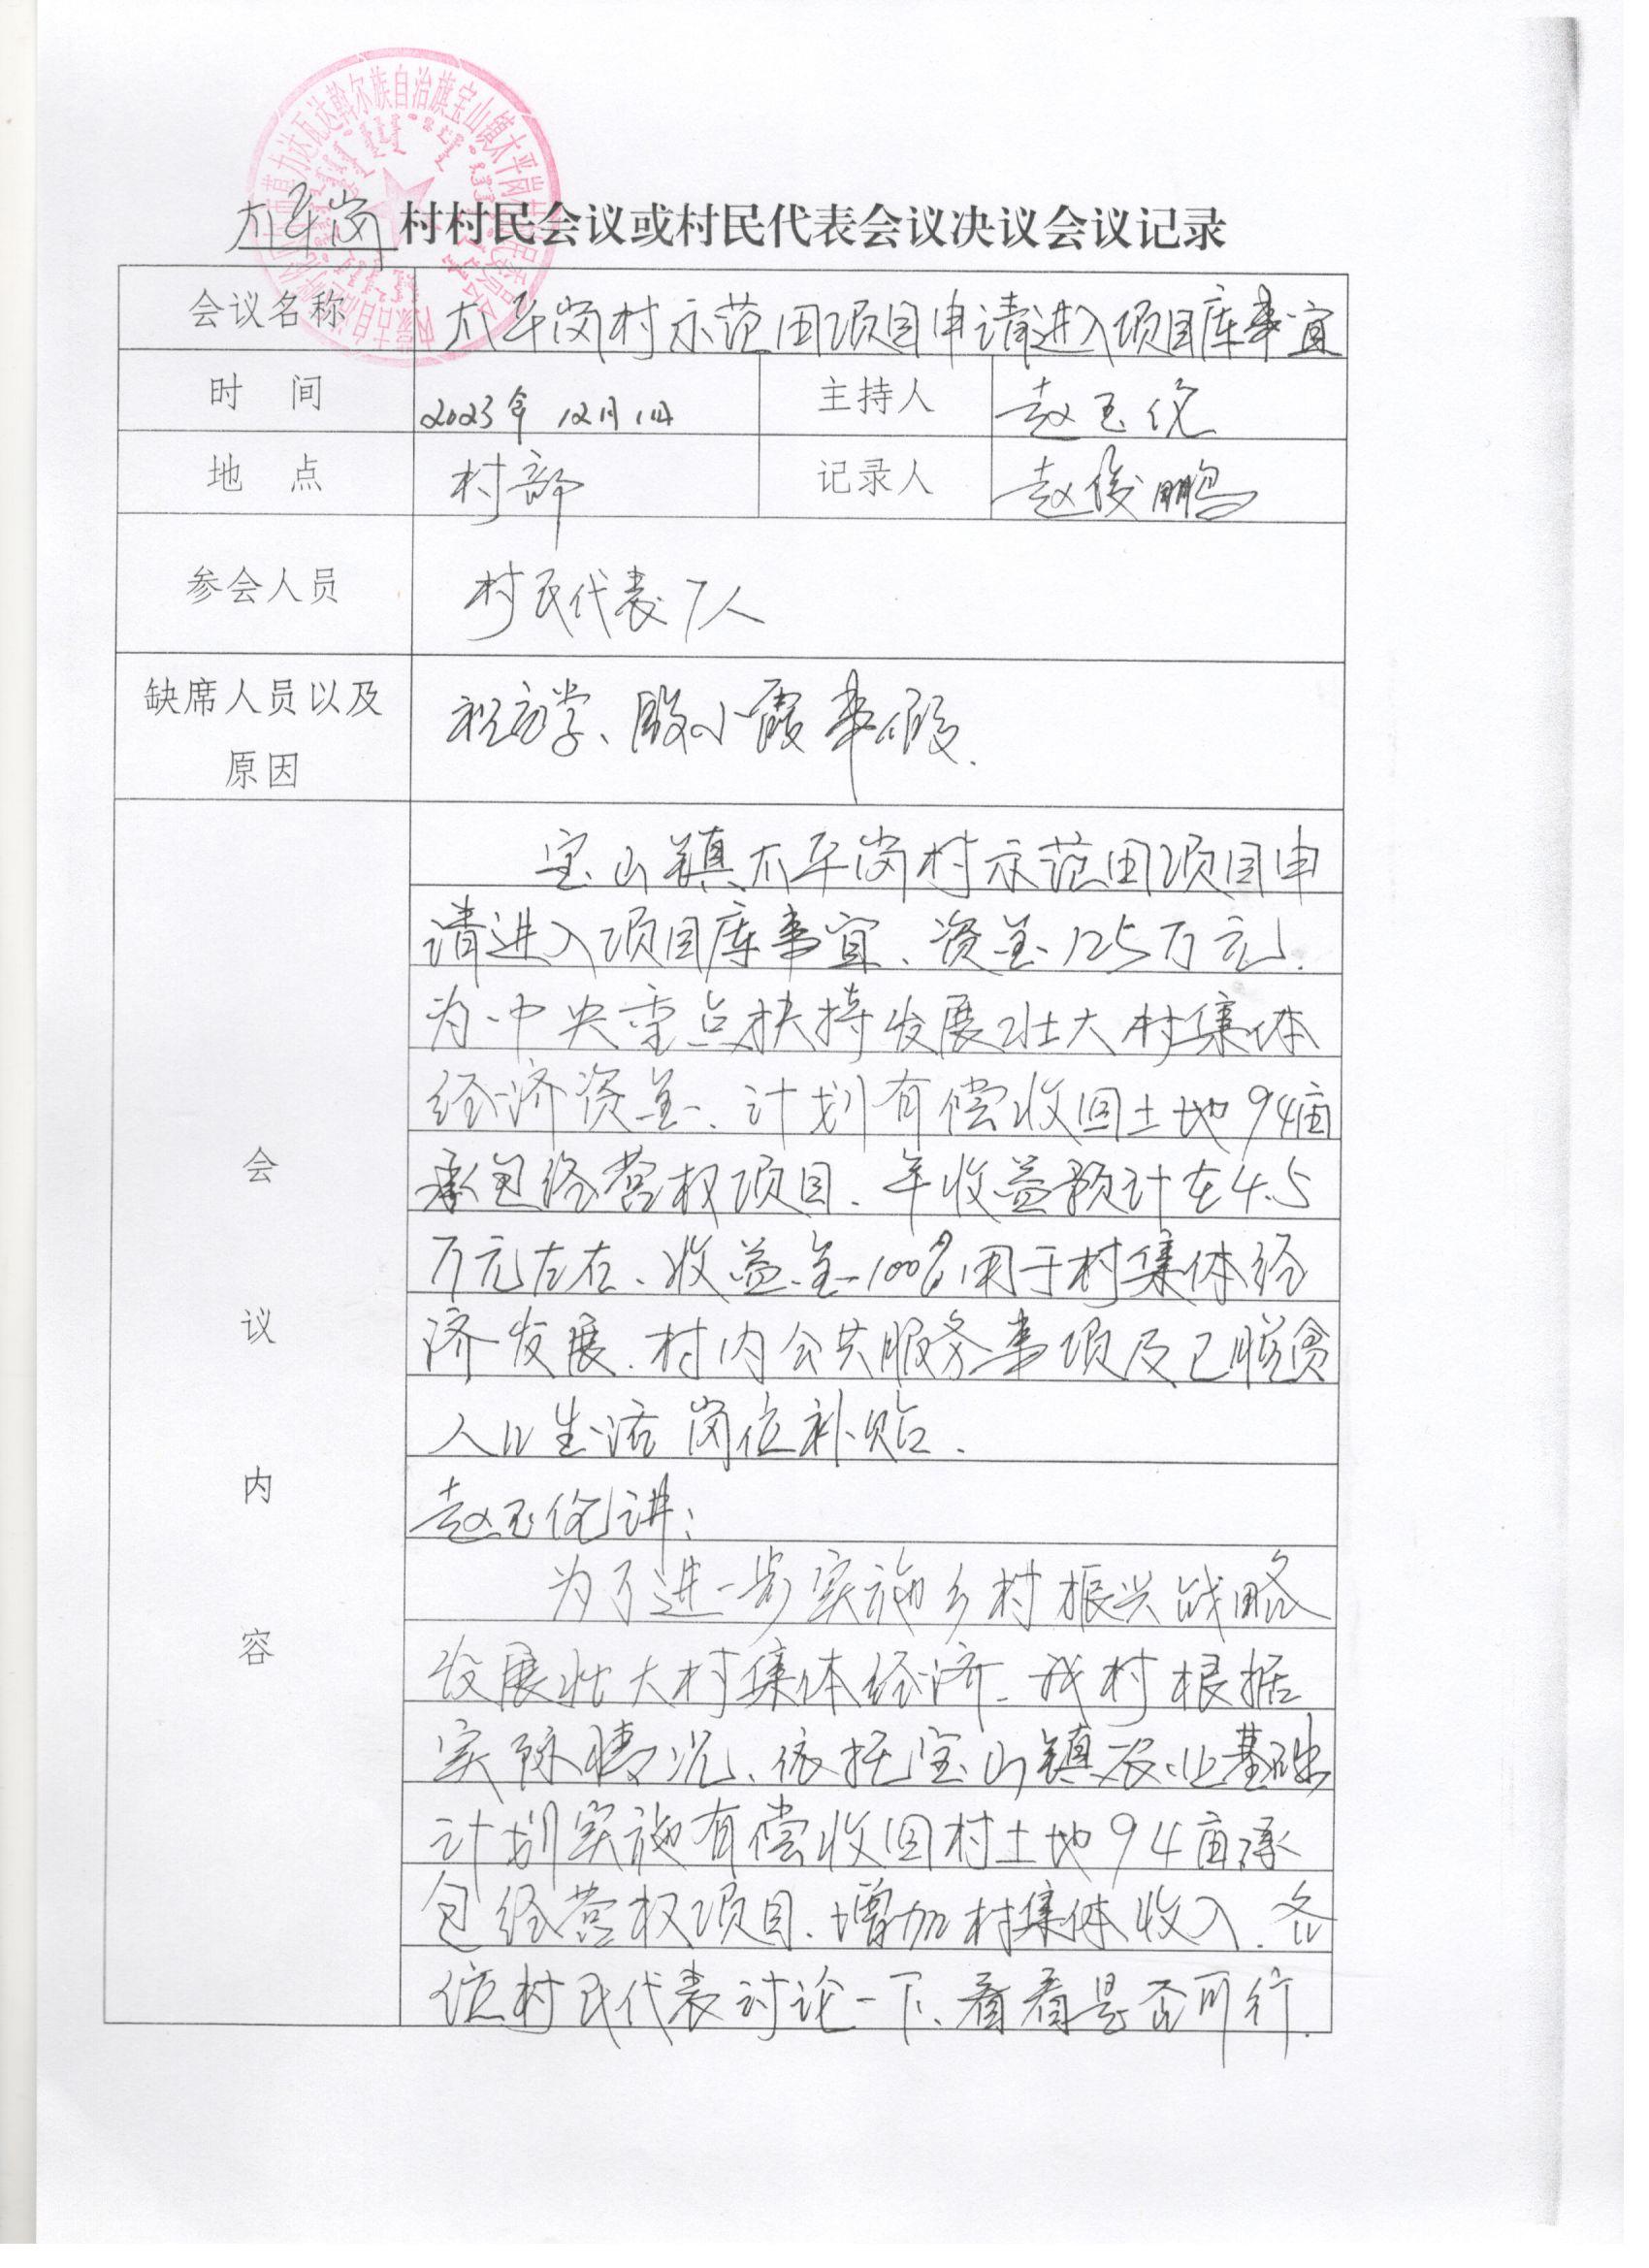 太平岗村村民会议或村民代表会议决议会议记录
会议名称 太平岗村示范田项目申请进入项目库事宜
时 间 2023年12月1日 主持人 赵玉
地 点 村部 记录人 赵俊鹏
参会人员 村民代表7人
缺席人员以及
原因
殷小霞事假.
会议内容
宝山镇太平岗村示范田项目申
请进入项目库事宜、资金125万元.
为中央重点扶持发展壮大村集体
经济资金、计划有偿收回土地94亩
承包经营权项目、年收益预计在4.5
万元左右、收益金100%用于村集体经
济发展、村内公共服务事项及已脱贫
人口生活岗位补贴.
赵玉 讲:
为了进一步实施乡村振兴战略
发展壮大村集体经济、我村根据
实际情况、依托宝山镇农业基础
计划实施有偿收回村土地94亩承
包经营权项目、增加村集体收入、各
位村民代表讨论一下、看看是否可行.